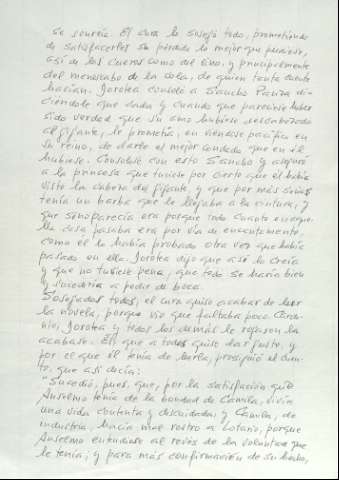 se sonreía. El cura lo sosegó todo, prometiendo
de satisfacerles su pérdida lo mejor que pudiese,
así de los cueros como del vino, y principalmente
del menoscabo de la cola, de quien tanta cuenta
hacían. Dorotea consoló a Sancho Panza di-
ciéndole que cada y cuando que pareciese haber
sido verdad que su amo hubiese descabezado
al gigante, le prometía, en viéndose pacífica en
su reino, de darle el mejor condado que en él
hubiese. Consolóse con esto Sancho y aseguró
a la princesa que tuviese por cierto que él había
visto la cabeza del gigante, y que por más señas
tenía un barba que le llegaba a la cintura; y
que si no parecía era porque todo cuanto en aque-
lla casa pasaba era por vía de encantamento,
como él lo había probado otra vez que había
posado en ella. Dorotea dijo que así lo creía
y que no tuviese pena, que todo se haría bien
y sucedería a pedir de boca.
Sosegados todos, el cura quiso acabar de leer
la novela, porque vio que faltaba poco. Carde-
nio, Dorotea y todos los demás le rogaron la
acabase. Él, que a todos quiso dar gusto, y
por el que él tenía de leerla, prosiguió el cuen-
to, que así decía:
"Sucedió, pues, que, por la satisfación que
Anselmo tenía de la bondad de Camila, vivía
una vida contenta y descuidada; y Camila, de
industria, hacía mal rostro a Lotario, porque
Anselmo entendiese al revés de la voluntad que
le tenía; y para más confirmación de su hecho,